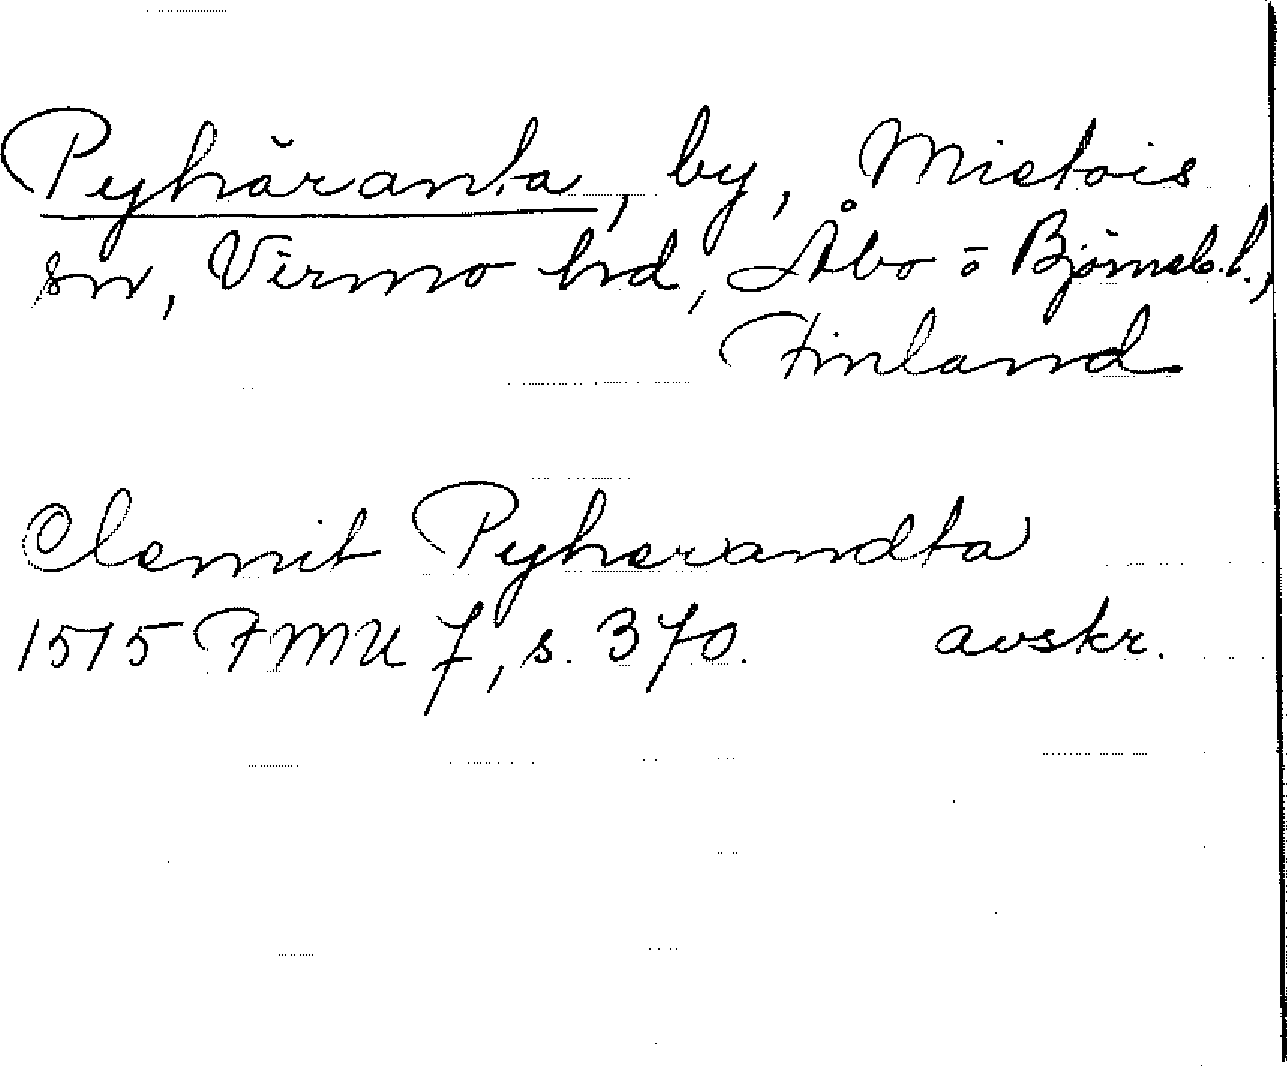 Pyhäranta, by, Mietois
sn, Virmo hd, Åbo o Björneb.l.,
Finland
Clemit Pyherandta
1515 FMU 7, s. 370. avskr.